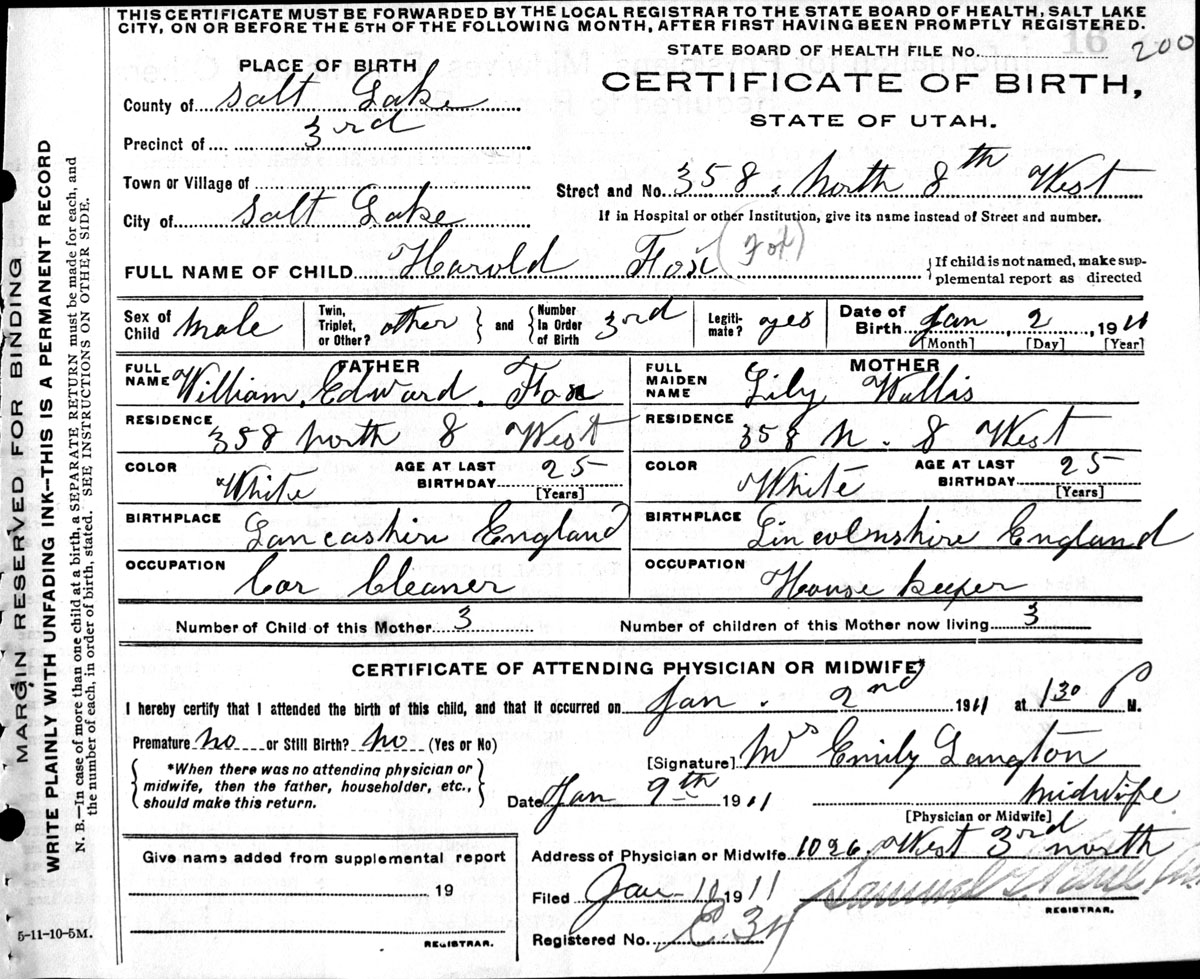 THIS CERTIFICATE MUST BE FORWARDED BY THE LOCAL REGISTRAR TO THE STATE BOARD OF HEALTH, SALT LAKE
CITY, ON OR BEFORE THE 5TH OF THE FOLLOWING MONTH, AFTER FIRST HAVING BEEN PROMPTLY REGISTERED.
STATE BOARD OF HEALTH FILE No. 200
PLACE OF BIRTH
CERTIFICATE OF BIRTH,
STATE OF UTAH.
County of Salt Lake
Precinct of 3rd
Town or Village of
Street and No. 358. North 8th West
City of Salt Lake
If in Hospital or other Institution, give its name instead of Street and number.
FULL NAME OF CHILD Harold Fox (Fox)
{If child is not named, make sup-
plemental report as directed
Sex of Child Male
Twin, Triplet, or Other? other } and { Number In Order of Birth 3rd
Legiti-mate? yes
Date of Birth Jan 2, 1911
[Month] [Day] [Year]
FATHER
FULL NAME William Edward. Fox
MOTHER
FULL MAIDEN NAME Lily Wallis
RESIDENCE 358 North 8 West
RESIDENCE 358 N. 8 West
COLOR White AGE AT LAST BIRTHDAY 25 [Years]
COLOR White AGE AT LAST BIRTHDAY 25 [Years]
BIRTHPLACE Lancashire England
BIRTHPLACE Lincolnshire England
OCCUPATION Car Cleaner
OCCUPATION House keeper
Number of Child of this Mother 3
Number of children of this Mother now living 3
CERTIFICATE OF ATTENDING PHYSICIAN OR MIDWIFE*
I hereby certify that I attended the birth of this child, and that it occurred on Jan. 2nd 1911 at 130 P M.
Premature No or Still Birth? No (Yes or No)
[Signature] Mrs Emily Langton
{ *When there was no attending physician or
midwife, then the father, householder, etc.,
should make this return. }
Date Jan 9th 1911
Midwife
[Physician or Midwife]
Address of Physician or Midwife 1026 West 3rd North
Give name added from supplemental report
19
REGISTRAR.
Filed Jan 10 1911
Samuel
REGISTRAR.
Registered No. 34
5-11-10-5M.
MARGIN RESERVED FOR BINDING
WRITE PLAINLY WITH UNFADING INK—THIS IS A PERMANENT RECORD
N. B.—In case of more than one child at a birth, a SEPARATE RETURN must be made for each, and
the number of each, in order of birth, stated. SEE INSTRUCTIONS ON OTHER SIDE.